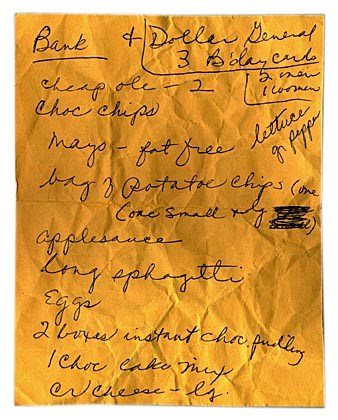 Bank & Dollar General
3 B'day cards
2 men
1 women
cheap ole - 2
choc chips
lettuce
gr pepper
mayo - fat free
bag of Potatoe chips (one
(one small
applesauce
long sphagetti
Eggs
2 boxes instant choc. pudding
1 choc cake mix
cr cheese - lg.